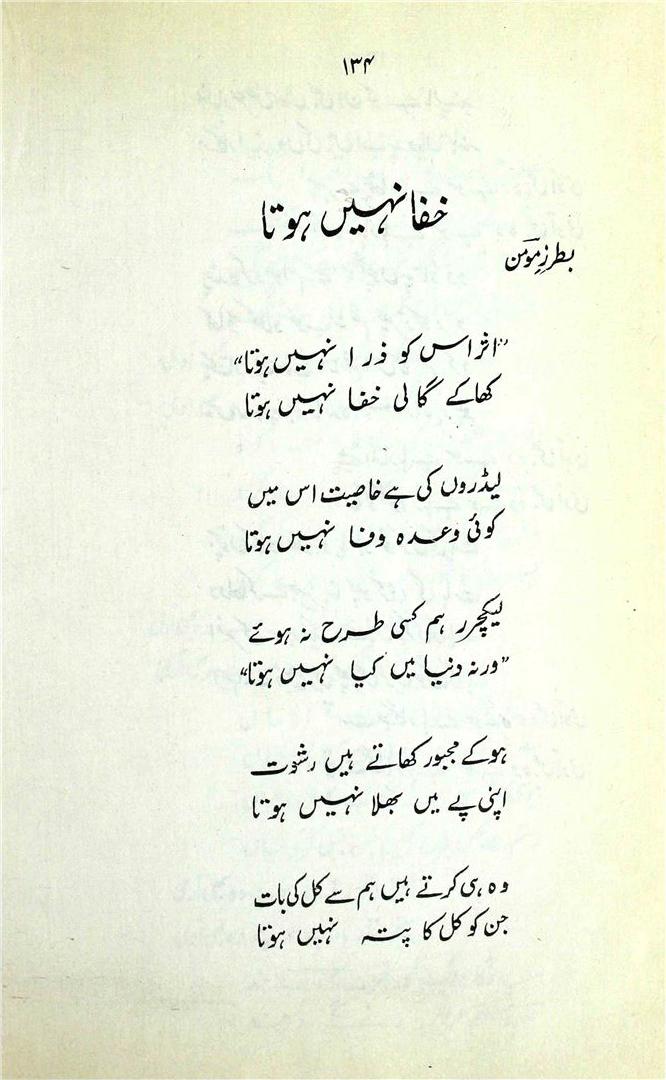 ۱۳۴
خفا نہیں ہوتا
بطرزِ مومن
"اثر اس کو ذرا نہیں ہوتا"
کھا کے گالی خفا نہیں ہوتا
لیڈروں کی ہے خاصیت اس میں
کوئی وعدہ وفا نہیں ہوتا
لیکچرر ہم کسی طرح نہ ہوئے
"ورنہ دنیا میں کیا نہیں ہوتا"
ہو کے مجبور کھاتے ہیں رشوت
اپنی پے میں بھلا نہیں ہوتا
وہ ہی کرتے ہیں ہم سے کل کی بات
جن کو کل کا پتہ نہیں ہوتا